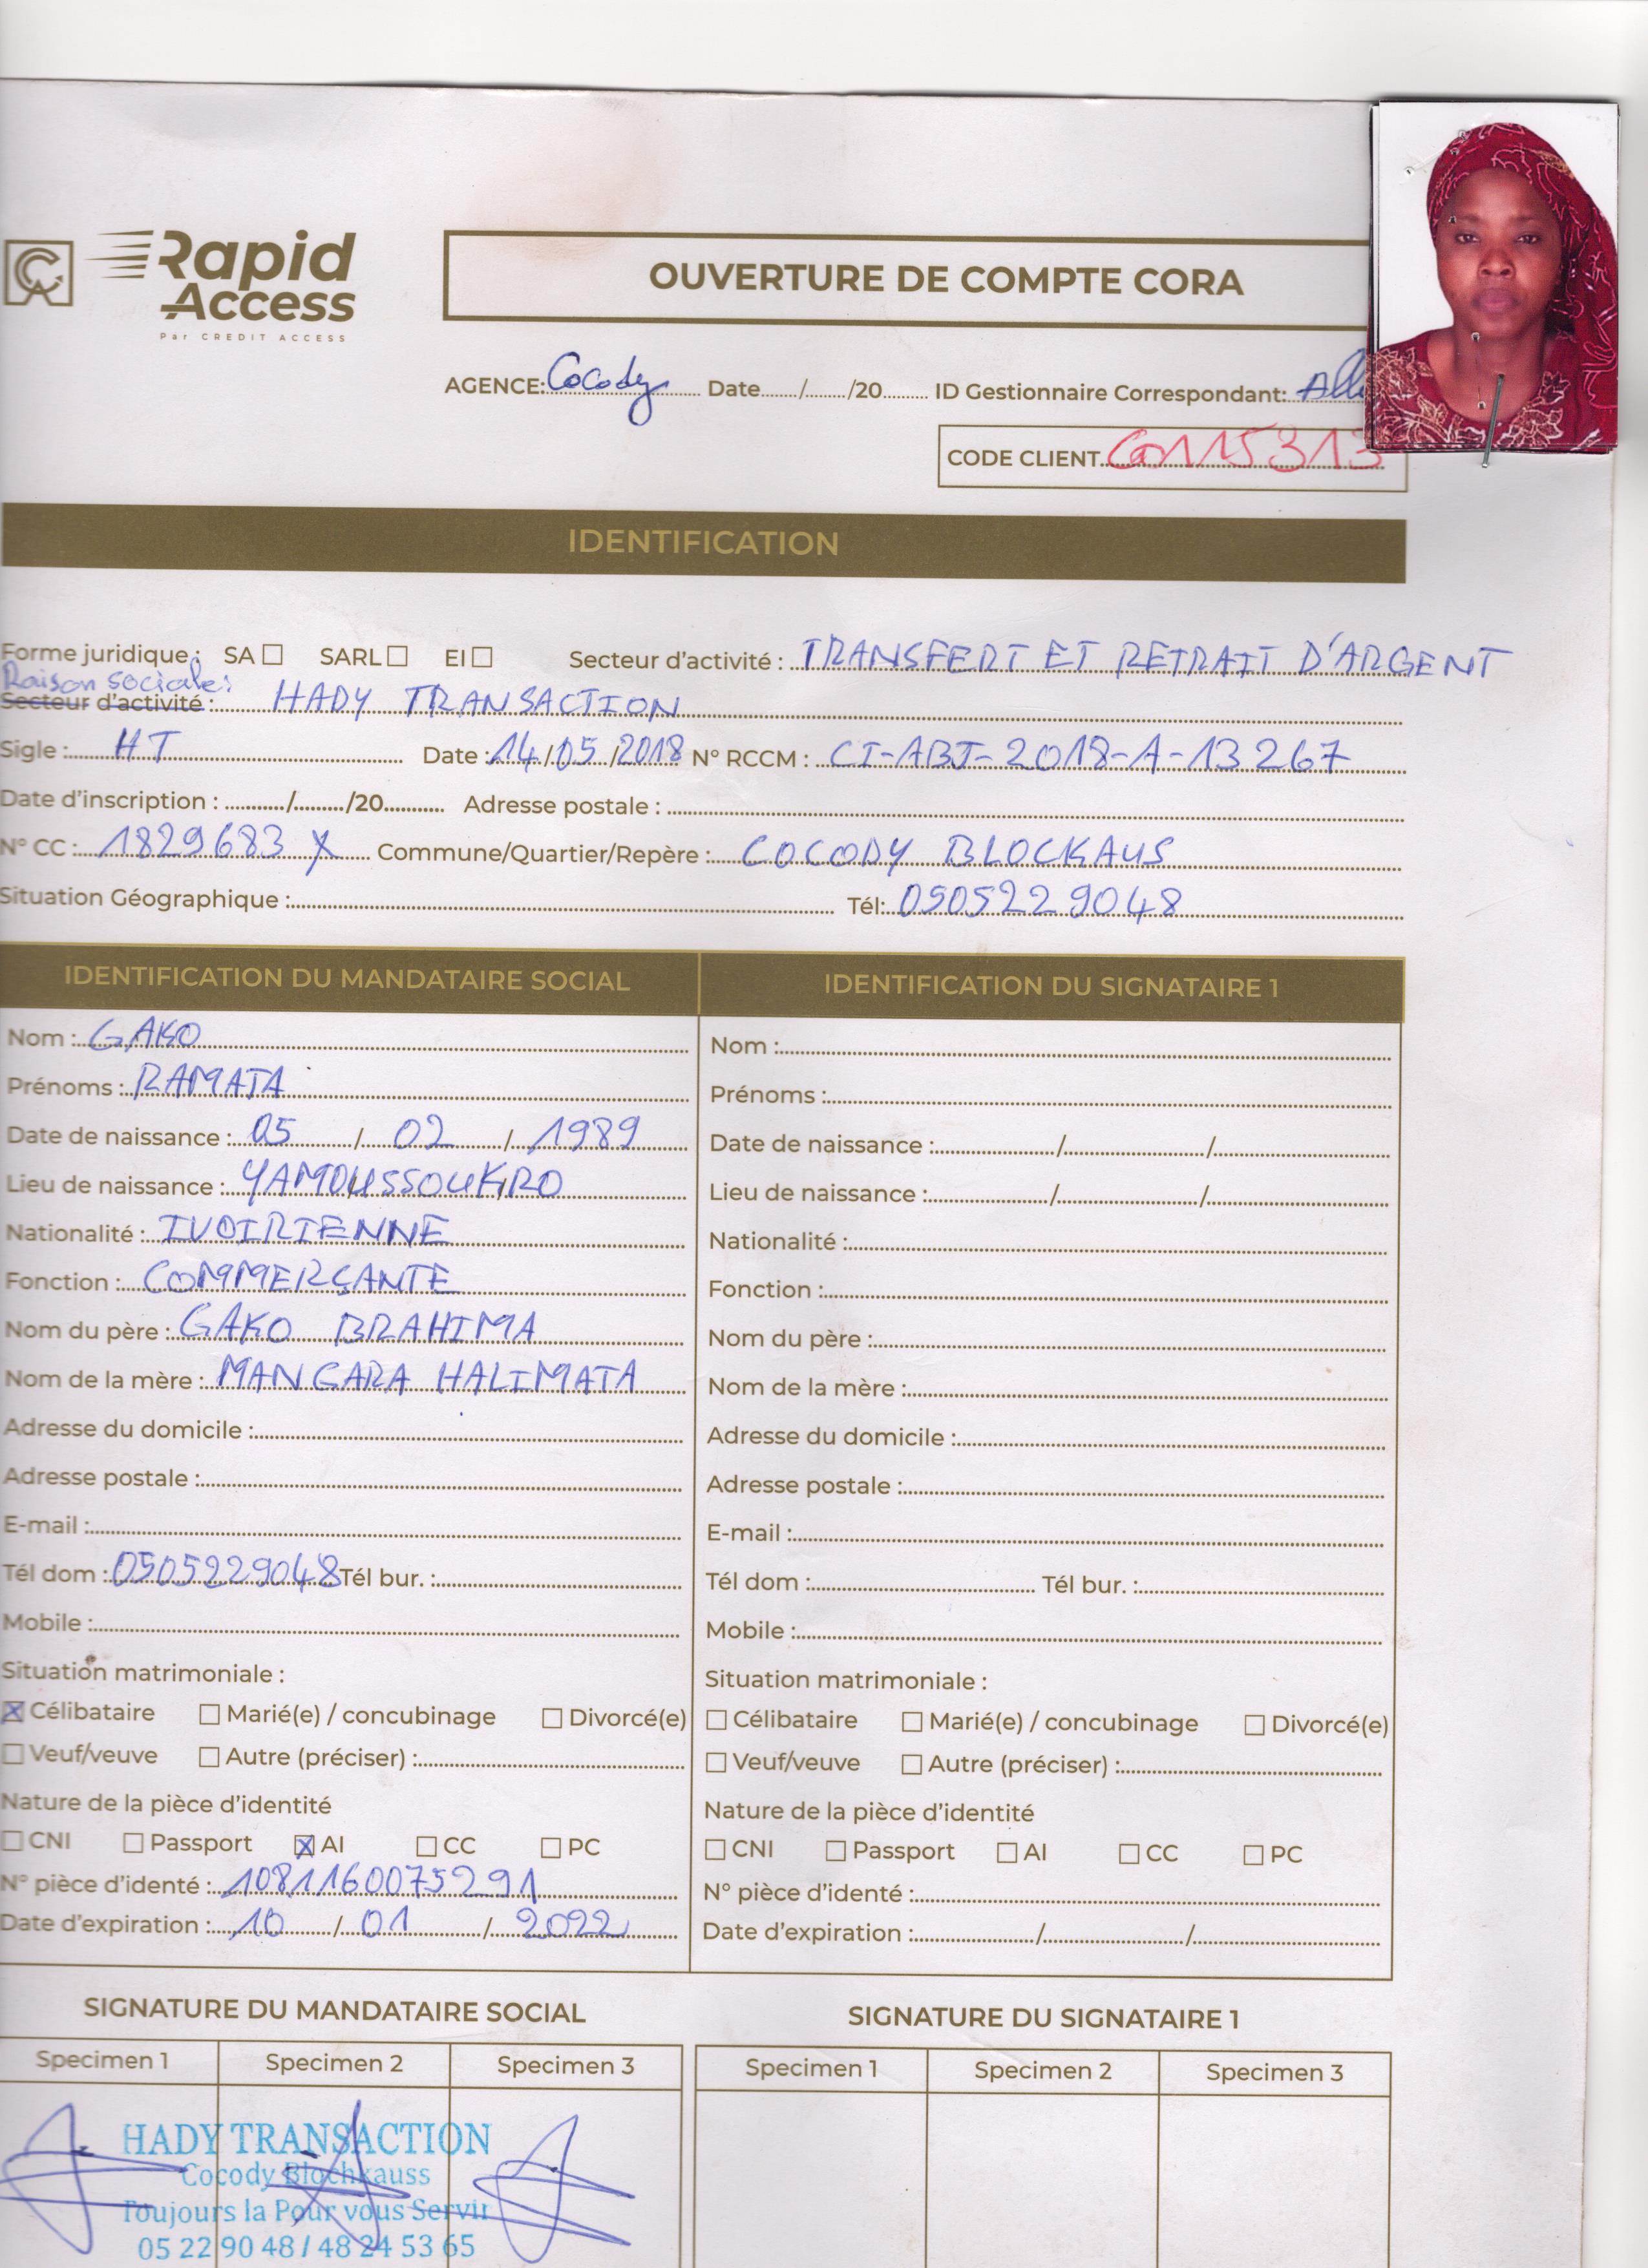 Rapid
Access
Par CREDIT ACCESS
OUVERTURE DE COMPTE CORA
AGENCE: Cocody Date....../....../20...... ID Gestionnaire Correspondant:
CODE CLIENT
IDENTIFICATION
Forme juridique : SA ☐ SARL ☐ EI ☐ Secteur d'activité : TRANSFERT ET RETRAIT D'ARGENT
Raison sociale:
Secteur d'activité : HADY TRANSACTION
Sigle : HT Date : 14/05/2018 N° RCCM : CI-ABJ-2018-A-13267
Date d'inscription : ....../....../20...... Adresse postale :
N° CC : 1829683 X Commune/Quartier/Repère : COCODY BLOCKAUS
Situation Géographique : Tél: 0505229048
IDENTIFICATION DU MANDATAIRE SOCIAL
Nom : GAKO
Prénoms : RAMATA
Date de naissance : 05 / 02 / 1989
Lieu de naissance : YAMOUSSOUKRO
Nationalité : IVOIRIENNE
Fonction : COMMERÇANTE
Nom du père : GAKO BRAHIMA
Nom de la mère : MANGARA HALIMATA
Adresse du domicile :
Adresse postale :
E-mail :
Tél dom : 0505229048 Tél bur. :
Mobile :
Situation matrimoniale :
☒ Célibataire ☐ Marié(e) / concubinage ☐ Divorcé(e)
☐ Veuf/veuve ☐ Autre (préciser) :
Nature de la pièce d'identité
☐ CNI ☐ Passport ☒ AI ☐ CC ☐ PC
N° pièce d'identé : 1081160075291
Date d'expiration : 10 / 01 / 2022
IDENTIFICATION DU SIGNATAIRE 1
Nom :
Prénoms :
Date de naissance : ....../....../......
Lieu de naissance : ....../....../......
Nationalité :
Fonction :
Nom du père :
Nom de la mère :
Adresse du domicile :
Adresse postale :
E-mail :
Tél dom : Tél bur. :
Mobile :
Situation matrimoniale :
☐ Célibataire ☐ Marié(e) / concubinage ☐ Divorcé(e)
☐ Veuf/veuve ☐ Autre (préciser) :
Nature de la pièce d'identité
☐ CNI ☐ Passport ☐ AI ☐ CC ☐ PC
N° pièce d'identé :
Date d'expiration : ....../....../......
SIGNATURE DU MANDATAIRE SOCIAL
Specimen 1 Specimen 2 Specimen 3
HADY TRANSACTION
Cocody Blochkauss
Toujours la Pour vous Servir
05 22 90 48 / 48 24 53 65
SIGNATURE DU SIGNATAIRE 1
Specimen 1 Specimen 2 Specimen 3